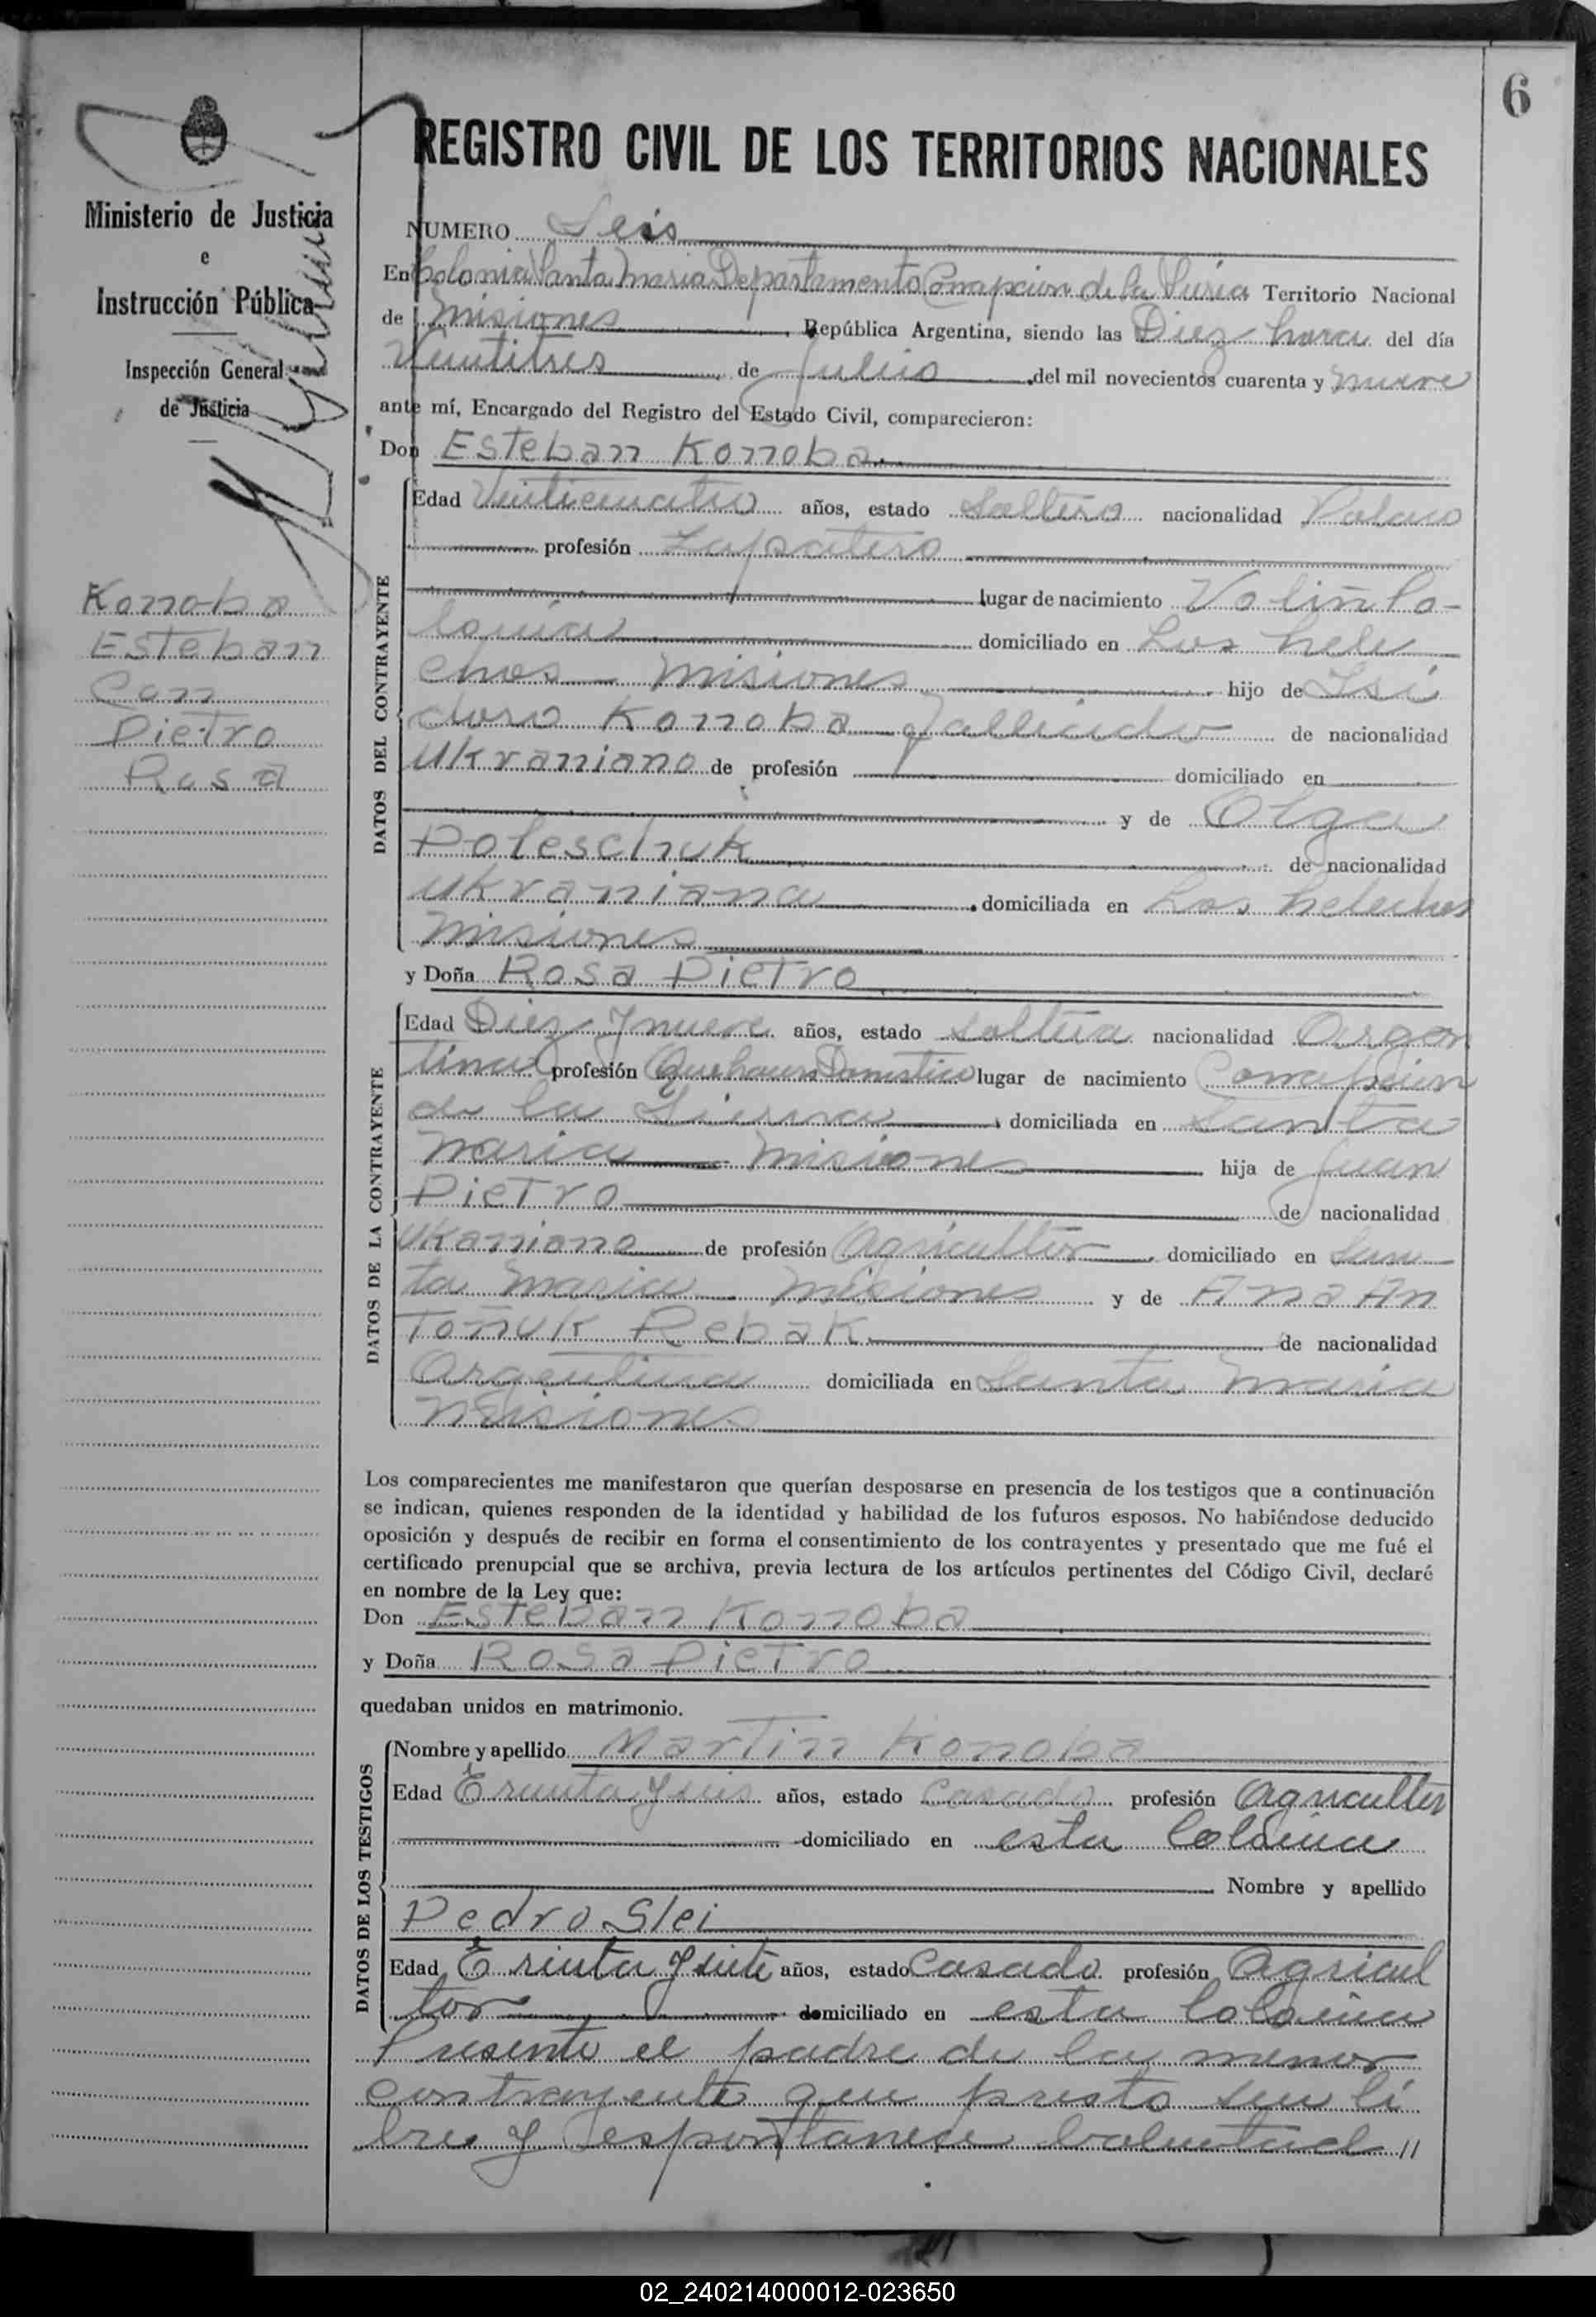 6
Ministerio de Justicia
e
Instrucción Pública
Inspección General
de Justicia
Konoba
Esteban
Con
Pietro
Rosa
REGISTRO CIVIL DE LOS TERRITORIOS NACIONALES
NUMERO Seis
En Colonia Santa Maria Departamento Concepcion de la Sierra Territorio Nacional
de Misiones, República Argentina, siendo las Diez horas del día
Veintitres de Julio del mil novecientos cuarenta y nueve
ante mí, Encargado del Registro del Estado Civil, comparecieron:
Don Esteban Konoba
DATOS DEL CONTRAYENTE
Edad Veinticuatro años, estado Soltero nacionalidad Polaco
profesión Zapatero
lugar de nacimiento Voliñ Po-
lonia domiciliado en Los hele
chos Misiones hijo de Isi
doro Konoba fallecido de nacionalidad
Ukraniano de profesión domiciliado en
y de Olga
Poleschuk de nacionalidad
Ukraniana domiciliada en Los helechos
Misiones
y Doña Rosa Pietro
DATOS DE LA CONTRAYENTE
Edad Diez y nueve años, estado Soltera nacionalidad Argen
tina profesión Quehacer Domestico lugar de nacimiento Concepcion
de la Sierra domiciliada en Santa
Maria Misiones hija de Juan
Pietro de nacionalidad
Ukaniano de profesión Agricultor, domiciliado en San
ta Maria Misiones y de Ana An
Toñuk Rebak de nacionalidad
Argentina domiciliada en Santa Maria
Misiones
Los comparecientes me manifestaron que querían desposarse en presencia de los testigos que a continuación
se indican, quienes responden de la identidad y habilidad de los futuros esposos. No habiéndose deducido
oposición y después de recibir en forma el consentimiento de los contrayentes y presentado que me fué el
certificado prenupcial que se archiva, previa lectura de los artículos pertinentes del Código Civil, declaré
en nombre de la Ley que:
Don Esteban Konoba
y Doña Rosa Pietro
quedaban unidos en matrimonio.
DATOS DE LOS TESTIGOS
Nombre y apellido Martin Konoba
Edad Treinta y seis años, estado Casado profesión Agricultor
domiciliado en esta Colonia
Nombre y apellido
Pedro Slei
Edad Treinta y siete años, estado Casado profesión Agricul
tor domiciliado en esta Colonia
Presente el padre de la menor
contrayente que presto su li
bre y espontanea boluntad //
02_240214000012-023650